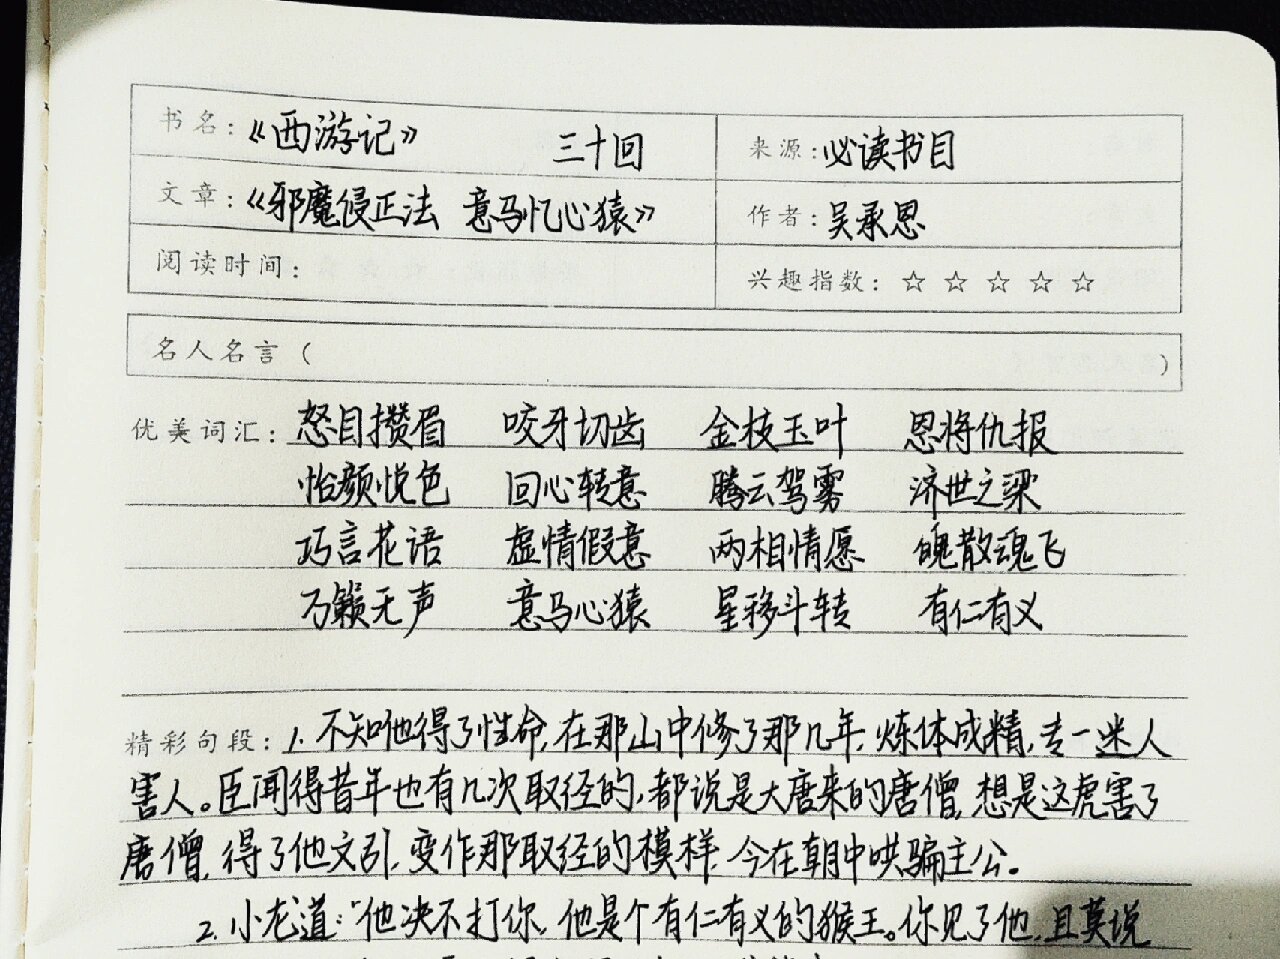 书名：《西游记》 三十回 来源：必读书目
文章：《邪魔侵正法 意马忆心猿》 作者：吴承恩
阅读时间： 兴趣指数：☆ ☆ ☆ ☆ ☆
名人名言（ ）
优美词汇：怒目攒眉 咬牙切齿 金枝玉叶 恩将仇报
怡颜悦色 回心转意 腾云驾雾 济世之梁
巧言花语 虚情假意 两相情愿 魄散魂飞
万籁无声 意马心猿 星移斗转 有仁有义
精彩句段：1. 不知他得了性命，在那山中修了那几年，炼体成精，专一迷人
害人。臣闻得昔年也有几次取经的，都说是大唐来的唐僧，想是这虎害了
唐僧，得了他文引，变作那取经的模样，今在朝中哄骗主公。
2. 小龙道：“他决不打你，他是个有仁有义的猴王。你见了他，且莫说